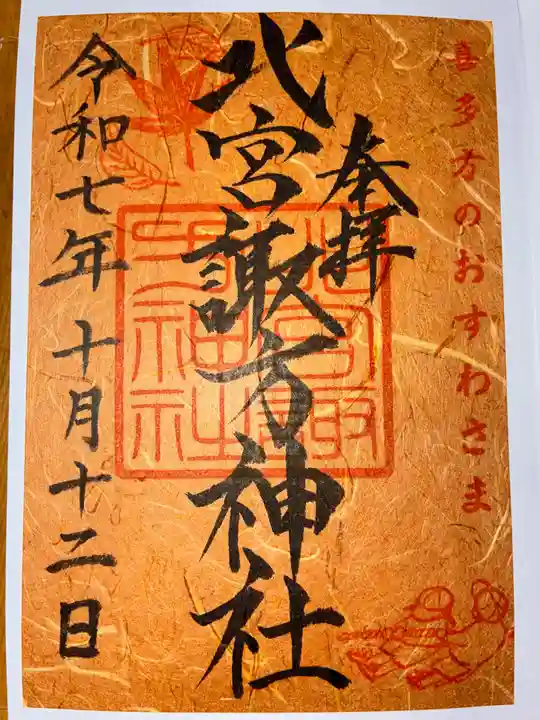 喜多方のおすわさま
奉拝
北宮諏方神社
北宮諏方神社
令和七年十月十二日